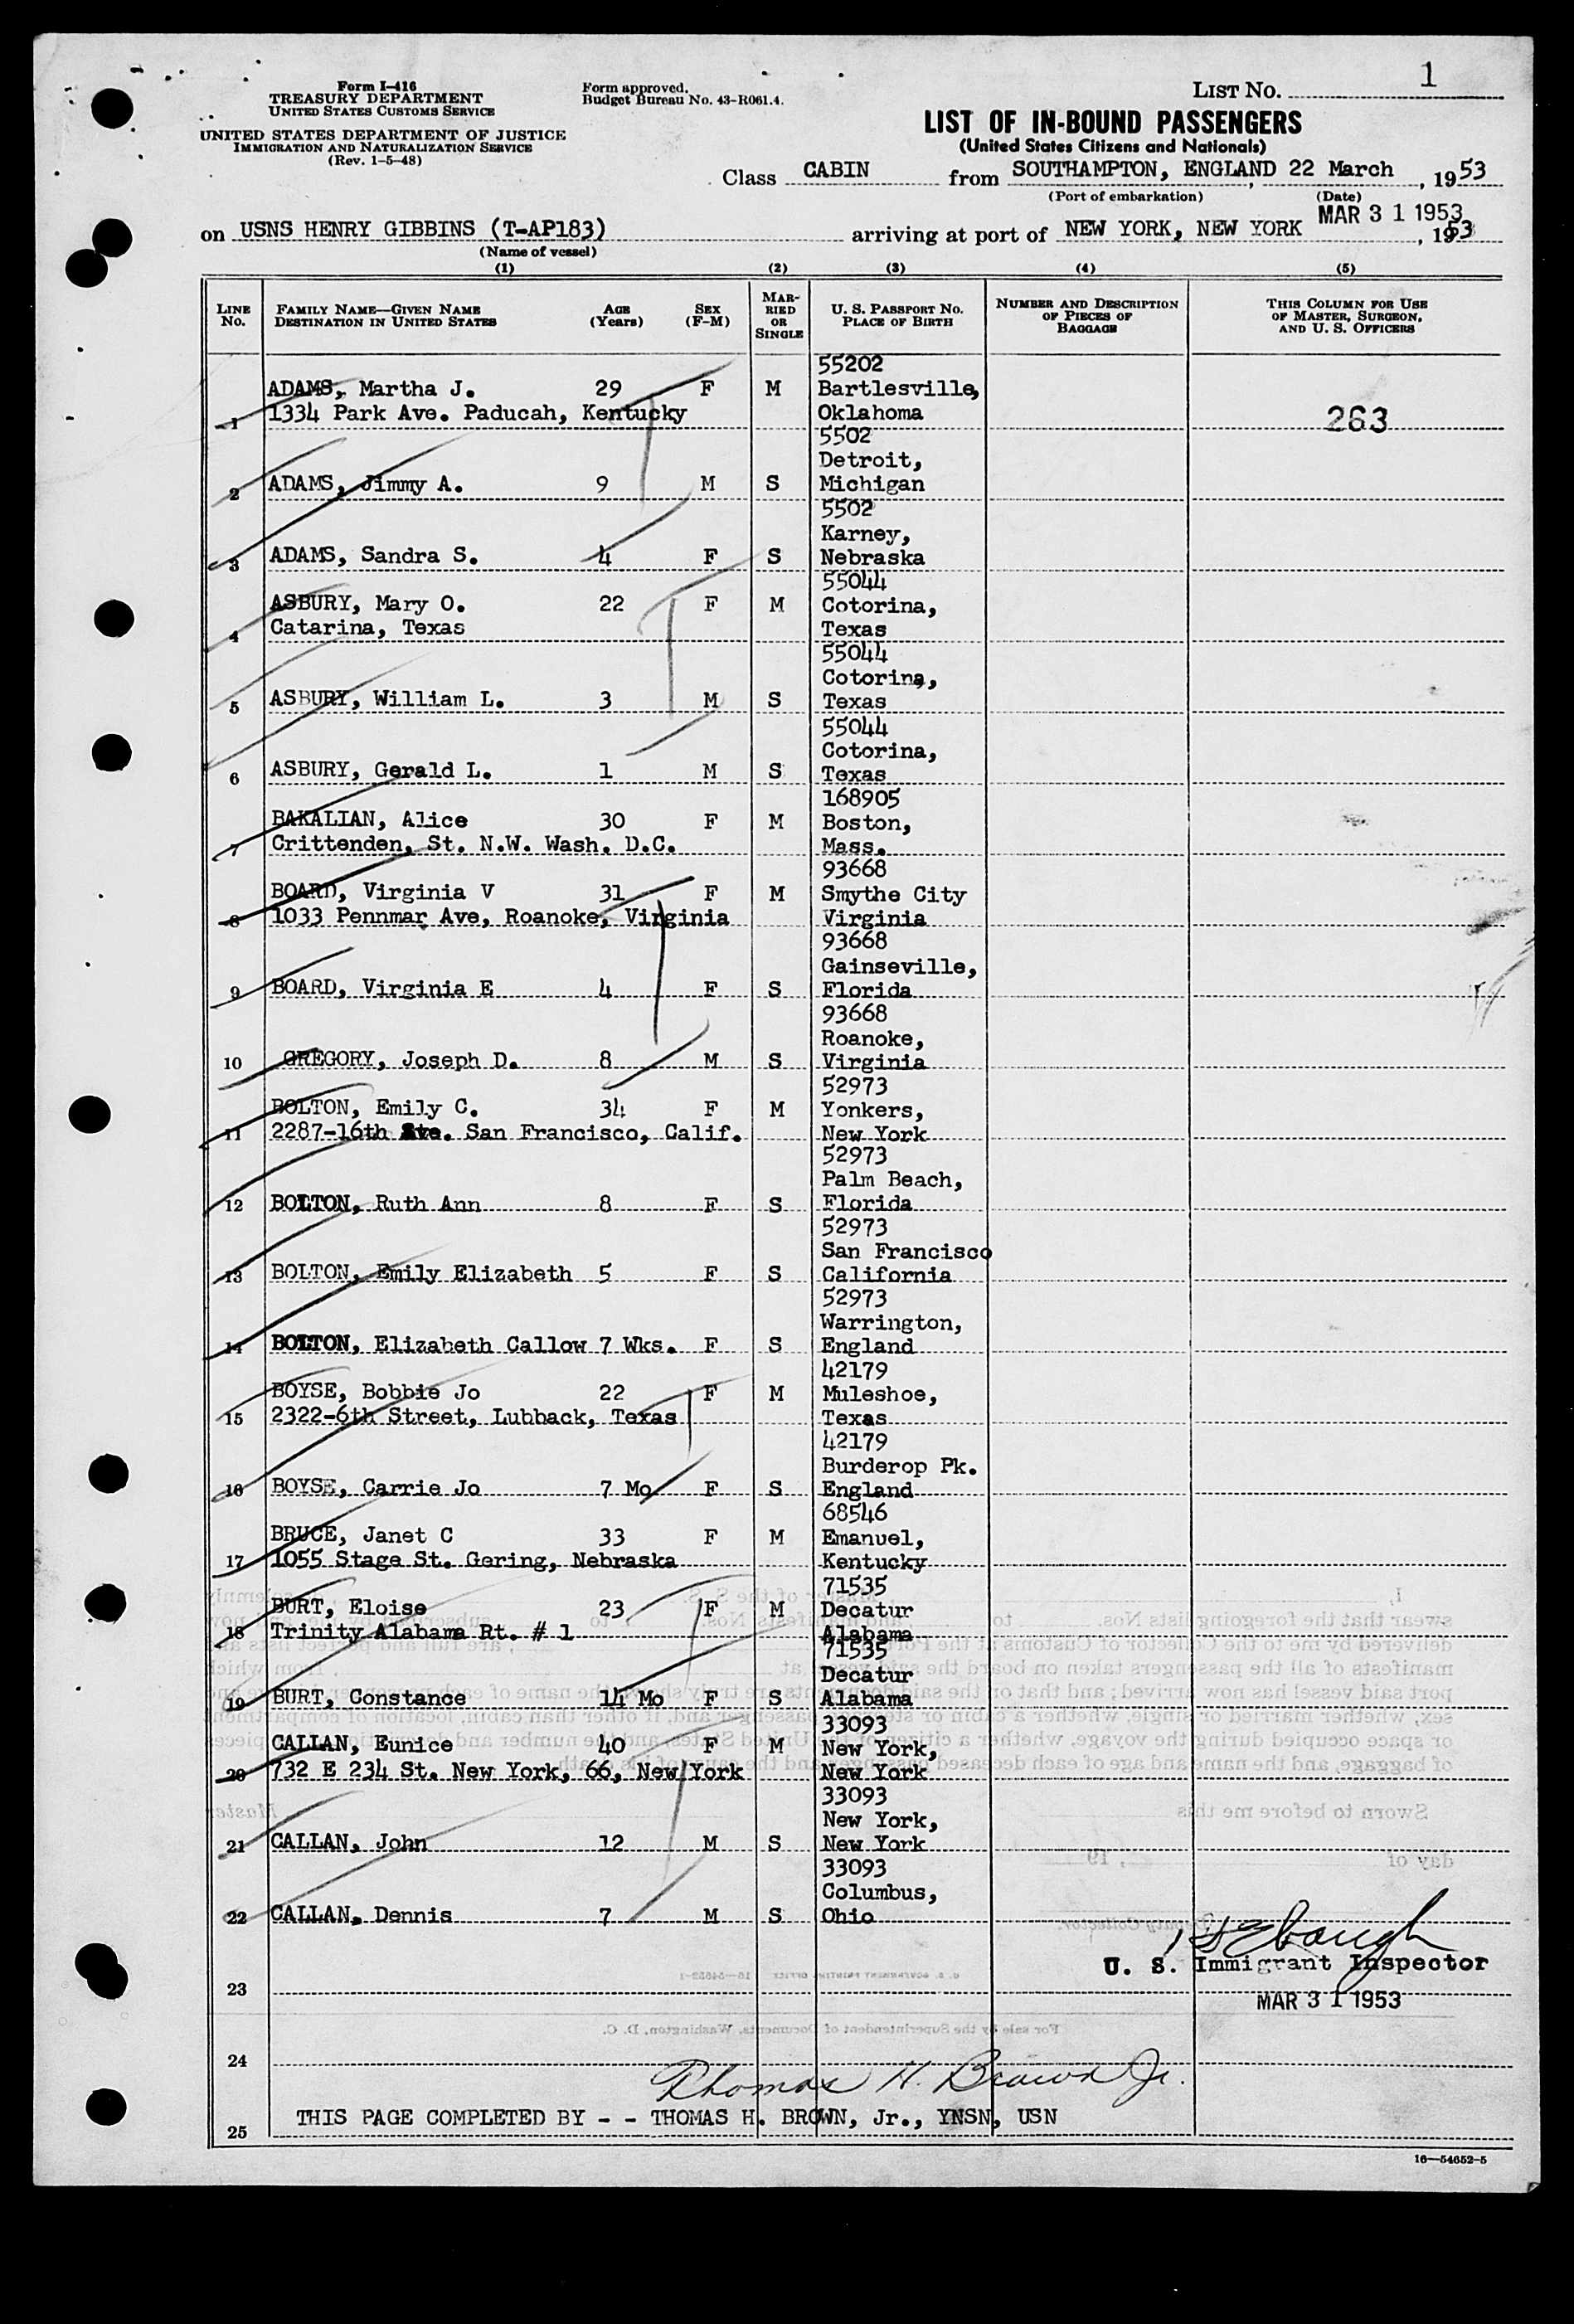 Form I-416
TREASURY DEPARTMENT
UNITED STATES CUSTOMS SERVICE
UNITED STATES DEPARTMENT OF JUSTICE
IMMIGRATION AND NATURALIZATION SERVICE
(Rev. 1-5-48)
Form approved.
Budget Bureau No. 43-R061.4.
LIST NO. 1
LIST OF IN-BOUND PASSENGERS
(United States Citizens and Nationals)
Class CABIN from SOUTHAMPTON, ENGLAND, 22 March, 1953
(Port of embarkation) (Date)
MAR 31 1953
on USNS HENRY GIBBINS (T-AP183) arriving at port of NEW YORK, NEW YORK, 1953
(Name of vessel)
(1) (2) (3) (4) (5)
LINE No. FAMILY NAME—GIVEN NAME DESTINATION IN UNITED STATES AGE (Years) SEX (F-M) MARRIED OR SINGLE U. S. PASSPORT NO. PLACE OF BIRTH NUMBER AND DESCRIPTION OF PIECES OF BAGGAGE THIS COLUMN FOR USE OF MASTER, SURGEON, AND U. S. OFFICERS
55202
ADAMS, Martha J. 29 F M Bartlesville,
1 1334 Park Ave. Paducah, Kentucky Oklahoma 263
5502
Detroit,
2 ADAMS, Jimmy A. 9 M S Michigan
5502
Karney,
3 ADAMS, Sandra S. 4 F S Nebraska
55044
ASBURY, Mary O. 22 F M Cotorina,
4 Catarina, Texas Texas
55044
Cotorina,
5 ASBURY, William L. 3 M S Texas
55044
Cotorina,
6 ASBURY, Gerald L. 1 M S Texas
168905
BAKALIAN, Alice 30 F M Boston,
7 Crittenden, St. N.W. Wash. D.C. Mass.
93668
BOARD, Virginia V 31 F M Smythe City
8 1033 Pennmar Ave, Roanoke, Virginia Virginia
93668
Gainseville,
9 BOARD, Virginia E 4 F S Florida
93668
Roanoke,
10 GREGORY, Joseph D. 8 M S Virginia
52973
BOLTON, Emily C. 34 F M Yonkers,
11 2287-16th Ave. San Francisco, Calif. New York
52973
Palm Beach,
12 BOLTON, Ruth Ann 8 F S Florida
52973
San Francisco
13 BOLTON, Emily Elizabeth 5 F S California
52973
Warrington,
14 BOLTON, Elizabeth Callow 7 Wks. F S England
42179
BOYSE, Bobbie Jo 22 F M Muleshoe,
15 2322-6th Street, Lubback, Texas Texas
42179
Burderop Pk.
16 BOYSE, Carrie Jo 7 Mo F S England
68546
BRUCE, Janet C 33 F M Emanuel,
17 1055 Stage St. Gering, Nebraska Kentucky
71535
BURT, Eloise 23 F M Decatur
18 Trinity Alabama Rt. # 1 Alabama
71535
Decatur
19 BURT, Constance 14 Mo F S Alabama
33093
CALLAN, Eunice 40 F M New York,
20 732 E 234 St. New York, 66, New York New York
33093
New York,
21 CALLAN, John 12 M S New York
33093
Columbus,
22 CALLAN, Dennis 7 M S Ohio
U. S. Immigrant Inspector
23
MAR 31 1953
24
Thomas H. Brown Jr.
25 THIS PAGE COMPLETED BY - - THOMAS H. BROWN, Jr., YNSN, USN
16—54652-5